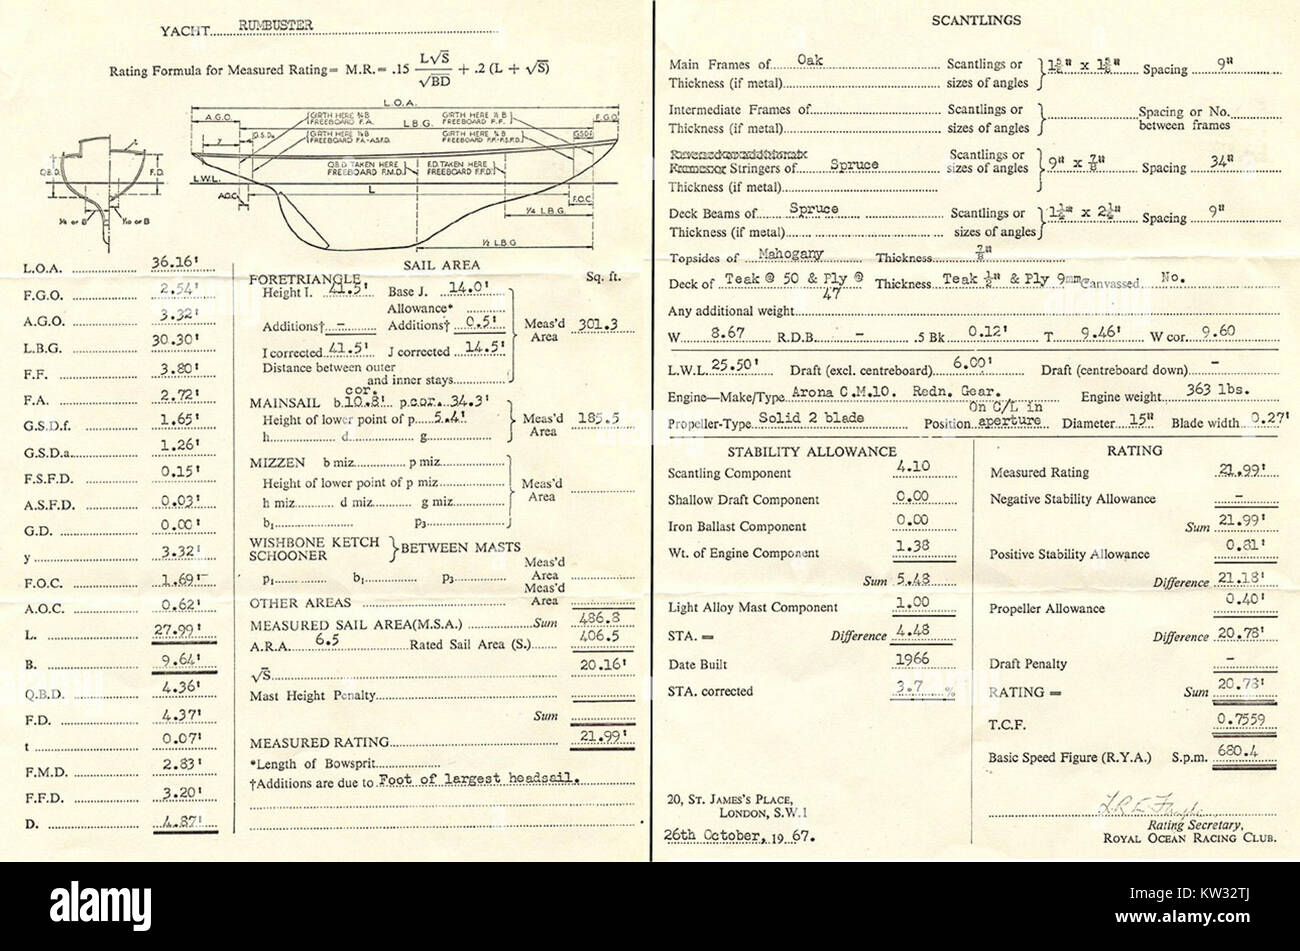 YACHT RUMBUSTER
Rating Formula for Measured Rating = M.R. = .15 L√S / √BD + .2 (L + √S)
L.O.A.
A.G.O. GIRTH HERE ¾ B FREEBOARD F.A. GIRTH HERE ½ B FREEBOARD F.F. F.G.O.
L.B.G.
y G.S.Da GIRTH HERE ⅞ B FREEBOARD F.A.-A.S.F.D. GIRTH HERE ¾ B FREEBOARD F.F.-F.S.F.D. G.S.Df
Q.B.D. F.D. t
L.W.L. Q.B.D TAKEN HERE FREEBOARD F.M.D. F.D. TAKEN HERE FREEBOARD F.F.D.
A.O.C. L F.O.C.
¼ OR B ⅒ OR B ¼ L.B.G.
½ L.B.G
L.O.A. 36.16'
F.G.O. 2.54'
A.G.O. 3.32'
L.B.G. 30.30'
F.F. 3.80'
F.A. 2.72'
G.S.D.f. 1.65'
G.S.D.a. 1.26'
F.S.F.D. 0.15'
A.S.F.D. 0.03'
G.D. 0.00'
y 3.32'
F.O.C. 1.69'
A.O.C. 0.62'
L. 27.99'
B. 9.64'
Q.B.D. 4.36'
F.D. 4.37'
t 0.07'
F.M.D. 2.83'
F.F.D. 3.20'
D. 4.87'
SAIL AREA
Sq. ft.
FORETRIANGLE
Height I. 41.5' Base J. 14.0'
Allowance*
Additions† - Additions† 0.5' Meas'd Area 301.3
I corrected 41.5' J corrected 14.5'
Distance between outer
and inner stays
cor.
MAINSAIL b 10.8' p cor. 34.3'
Height of lower point of p 5.4' Meas'd Area 185.5
h d g
MIZZEN b miz p miz
Height of lower point of p miz Meas'd Area
h miz d miz g miz
b₁ p₃
WISHBONE KETCH
SCHOONER } BETWEEN MASTS
p₁ b₁ p₃ Meas'd Area
OTHER AREAS Meas'd Area
MEASURED SAIL AREA (M.S.A.) Sum 486.8
A.R.A. 6.5 Rated Sail Area (S.) 406.5
√S 20.16'
Mast Height Penalty
Sum
MEASURED RATING 21.99'
*Length of Bowsprit
†Additions are due to Foot of largest headsail.
SCANTLINGS
Main Frames of Oak Scantlings or 1⅝" x 1⅝" Spacing 9"
Thickness (if metal) sizes of angles
Intermediate Frames of Scantlings or Spacing or No.
Thickness (if metal) sizes of angles between frames
Scantlings or
Stringers of Spruce sizes of angles 9" x ⅞" Spacing 34"
Thickness (if metal)
Deck Beams of Spruce Scantlings or 1¼" x 2¼" Spacing 9"
Thickness (if metal) sizes of angles
Topsides of Mahogany Thickness ⅞"
Deck of Teak @ 50 & Ply @ 47 Thickness Teak ½" & Ply 9mm Canvassed No.
Any additional weight
W 8.67 R.D.B. - .5 Bk 0.12' T 9.46' W cor. 9.60
L.W.L. 25.50' Draft (excl. centreboard) 6.00' Draft (centreboard down) -
Engine—Make/Type Arona C.M.10. Redn. Gear. Engine weight 363 lbs.
Propeller-Type Solid 2 blade Position On C/L in aperture Diameter 15" Blade width 0.27'
STABILITY ALLOWANCE
Scantling Component 4.10
Shallow Draft Component 0.00
Iron Ballast Component 0.00
Wt. of Engine Component 1.38
Sum 5.48
Light Alloy Mast Component 1.00
STA. = Difference 4.48
Date Built 1966
STA. corrected 3.7 %
RATING
Measured Rating 21.99'
Negative Stability Allowance -
Sum 21.99'
Positive Stability Allowance 0.81'
Difference 21.18'
Propeller Allowance 0.40'
Difference 20.78'
Draft Penalty -
RATING = Sum 20.78'
T.C.F. 0.7559
Basic Speed Figure (R.Y.A.) S.p.m. 680.4
20, ST. JAMES'S PLACE,
LONDON, S.W.1
26th October, 19 67.
Rating Secretary,
ROYAL OCEAN RACING CLUB.
alamy
Image ID: KW32TJ
www.alamy.com